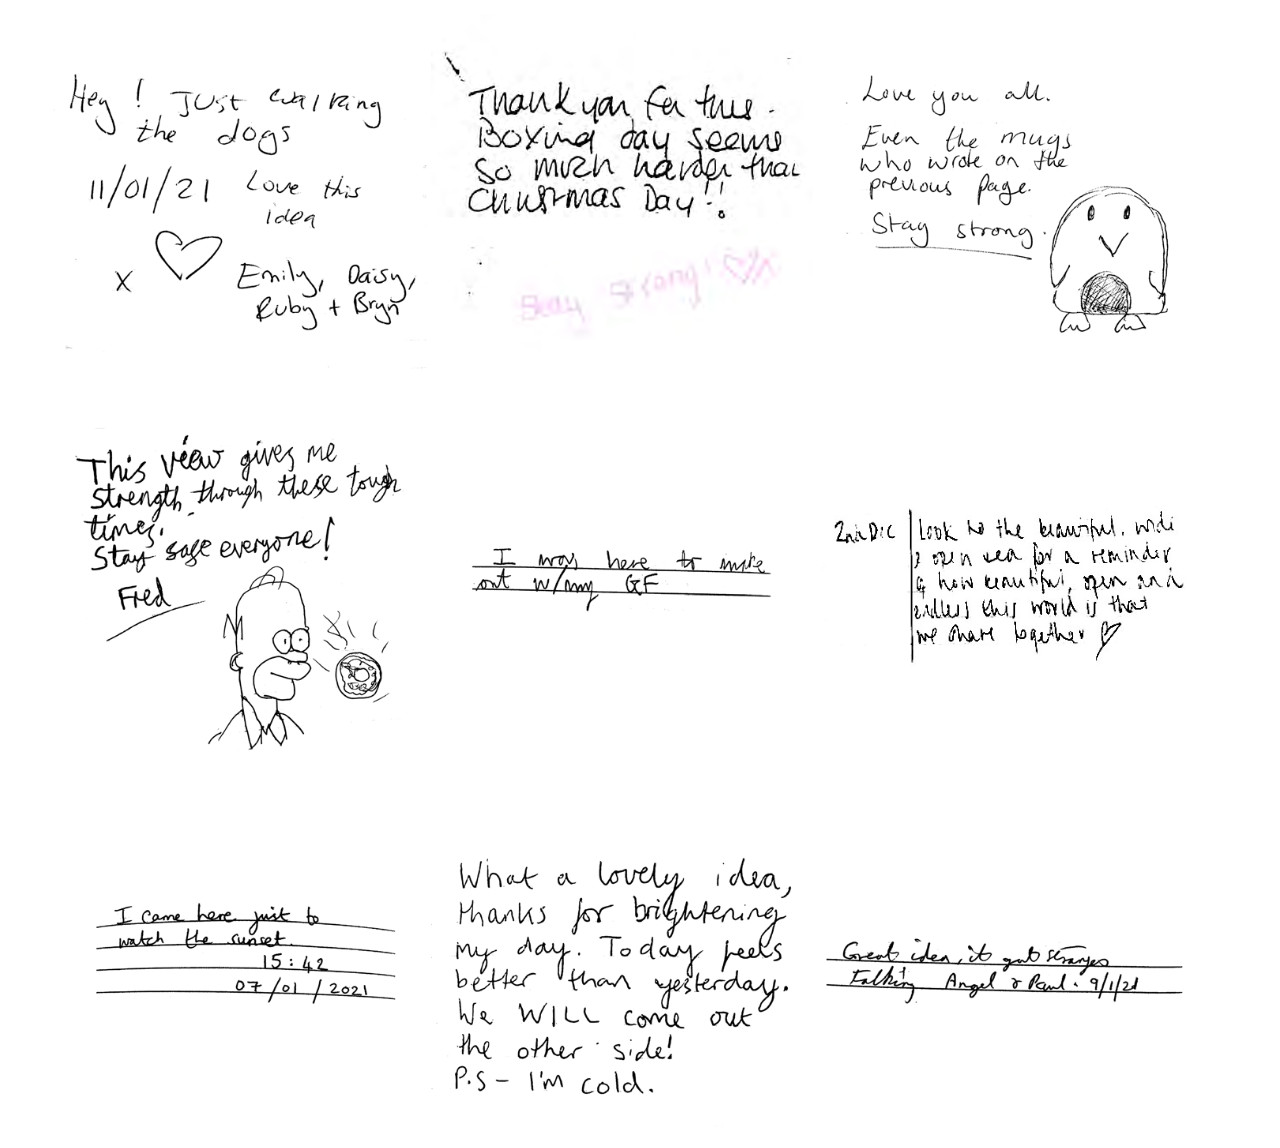 Hey! Just walking
the dogs
11/01/21 Love this
idea
x ♡ Emily, Daisy,
Ruby + Bryn
Thank you for this.
Boxing day seems
so much harder than
Christmas Day!!
Stay Strong! ♡
Love you all.
Even the mugs
who wrote on the
previous page.
Stay strong.
This view gives me
strength through these tough
times.
Stay safe everyone!
Fred
I was here to make
out w/my GF
Look to the beautiful, wide
& open sea for a reminder
of how beautiful, open and
endless this world is that
we share together ♡
I came here just to
watch the sunset.
15:42
07/01/2021
What a lovely idea,
thanks for brightening
my day. Today feels
better than yesterday.
We WILL come out
the other side!
P.S - I'm cold.
Great idea, it got strangers
talking Angel & Paul. 9/1/21